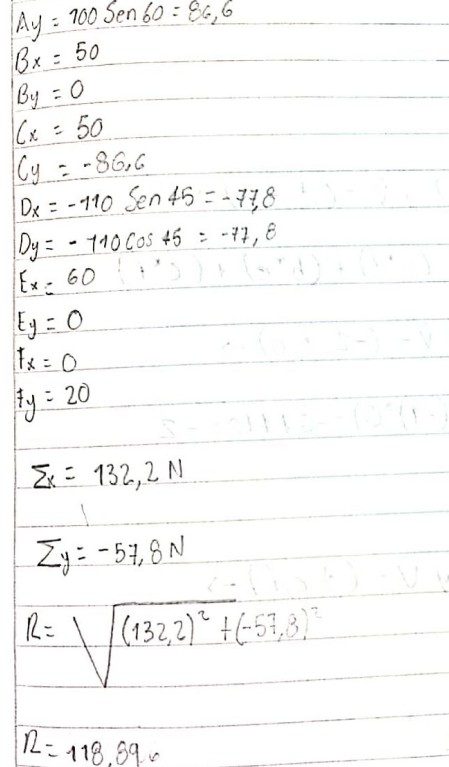 Ay = 100 Sen 60 = 86,6
Bx = 50
By = 0
Cx = 50
Cy = -86,6
Dx = -110 Sen 45 = -77,8
Dy = -110 Cos 45 = -77,8
Ex = 60
Ey = 0
Fx = 0
Fy = 20
Σx = 132,2 N
Σy = -57,8 N
R = √(132,2)² + (-57,8)²
R = 118,896